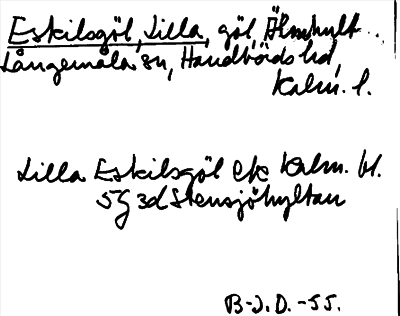 Eskilsgöl, Lilla, göl, Älmhult..
Långemåla sn, Handbörds hd,
Kalm. l.
Lilla Eskilsgöl ek Kalm. bl.
5g 3d Stensjöhyltan
B-J. D. -55.